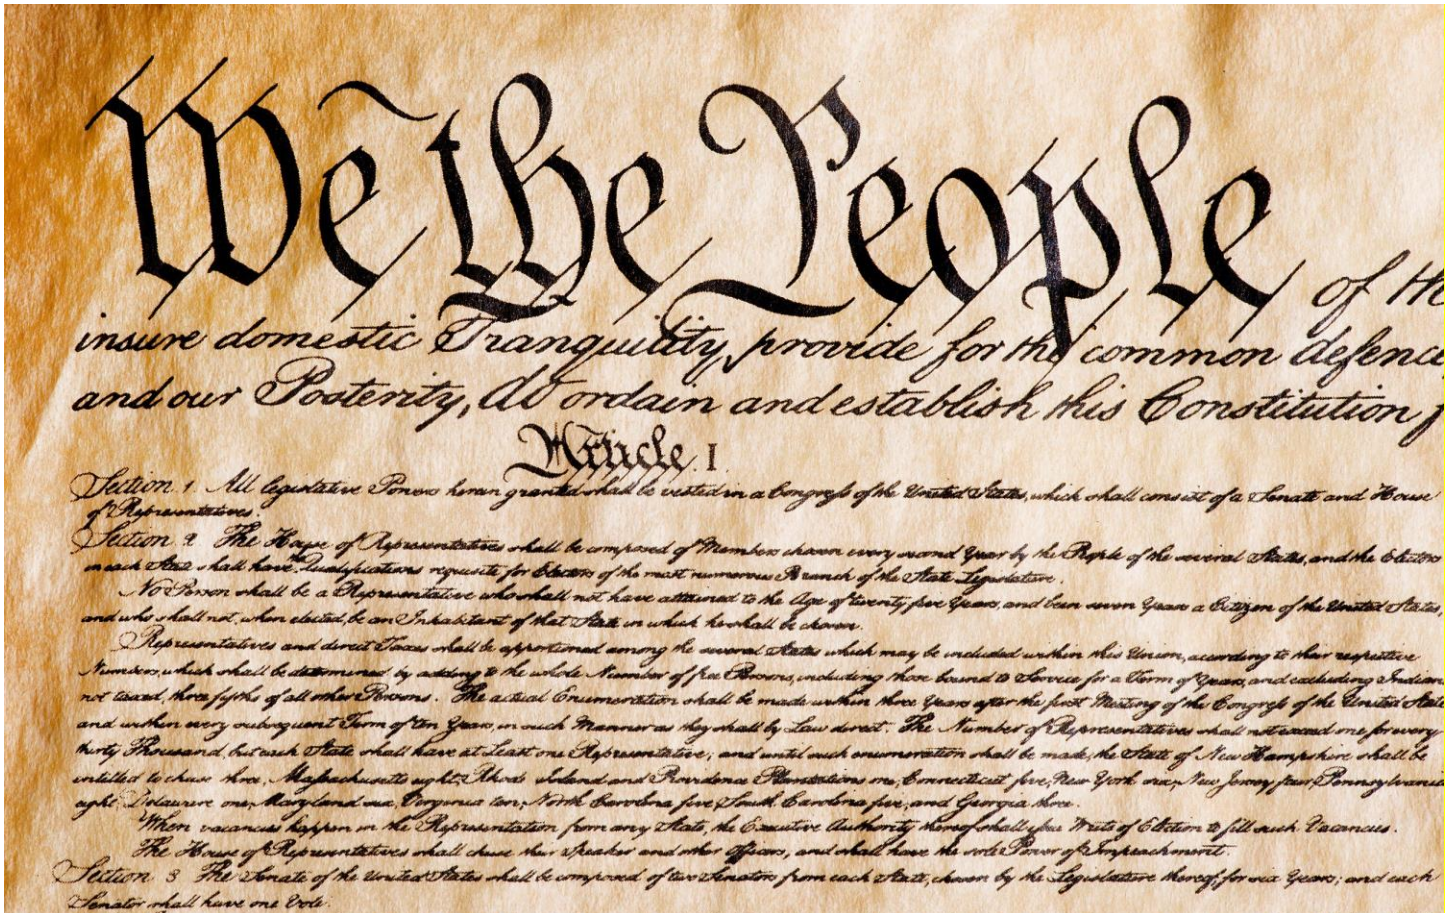 We the People of the
insure domestic Tranquility, provide for the common defence,
and our Posterity, do ordain and establish this Constitution f
Article. I.
Section 1. All legislative Powers herein granted shall be vested in a Congress of the United States, which shall consist of a Senate and House
of Representatives.
Section 2. The House of Representatives shall be composed of Members chosen every second Year by the People of the several States, and the Electors
in each State shall have the Qualifications requisite for Electors of the most numerous Branch of the State Legislature.
No Person shall be a Representative who shall not have attained to the Age of twenty five Years, and been seven Years a Citizen of the United States,
and who shall not, when elected, be an Inhabitant of that State in which he shall be chosen.
Representatives and direct Taxes shall be apportioned among the several States which may be included within this Union, according to their respective
Numbers, which shall be determined by adding to the whole Number of free Persons, including those bound to Service for a Term of Years, and excluding Indians
not taxed, three fifths of all other Persons. The actual Enumeration shall be made within three Years after the first Meeting of the Congress of the United States
and within every subsequent Term of ten Years, in such Manner as they shall by Law direct. The Number of Representatives shall not exceed one for every
thirty Thousand, but each State shall have at Least one Representative; and until such enumeration shall be made, the State of New Hampshire shall be
entitled to chuse three, Massachusetts eight, Rhode Island and Providence Plantations one, Connecticut five, New York six, New Jersey four, Pennsylvania
eight, Delaware one, Maryland six, Virginia ten, North Carolina five, South Carolina five, and Georgia three.
When vacancies happen in the Representation from any State, the Executive Authority thereof shall issue Writs of Election to fill such Vacancies.
The House of Representatives shall chuse their Speaker and other Officers; and shall have the sole Power of Impeachment.
Section 3 The Senate of the United States shall be composed of two Senators from each State, chosen by the Legislature thereof, for six Years; and each
Senator shall have one Vote.